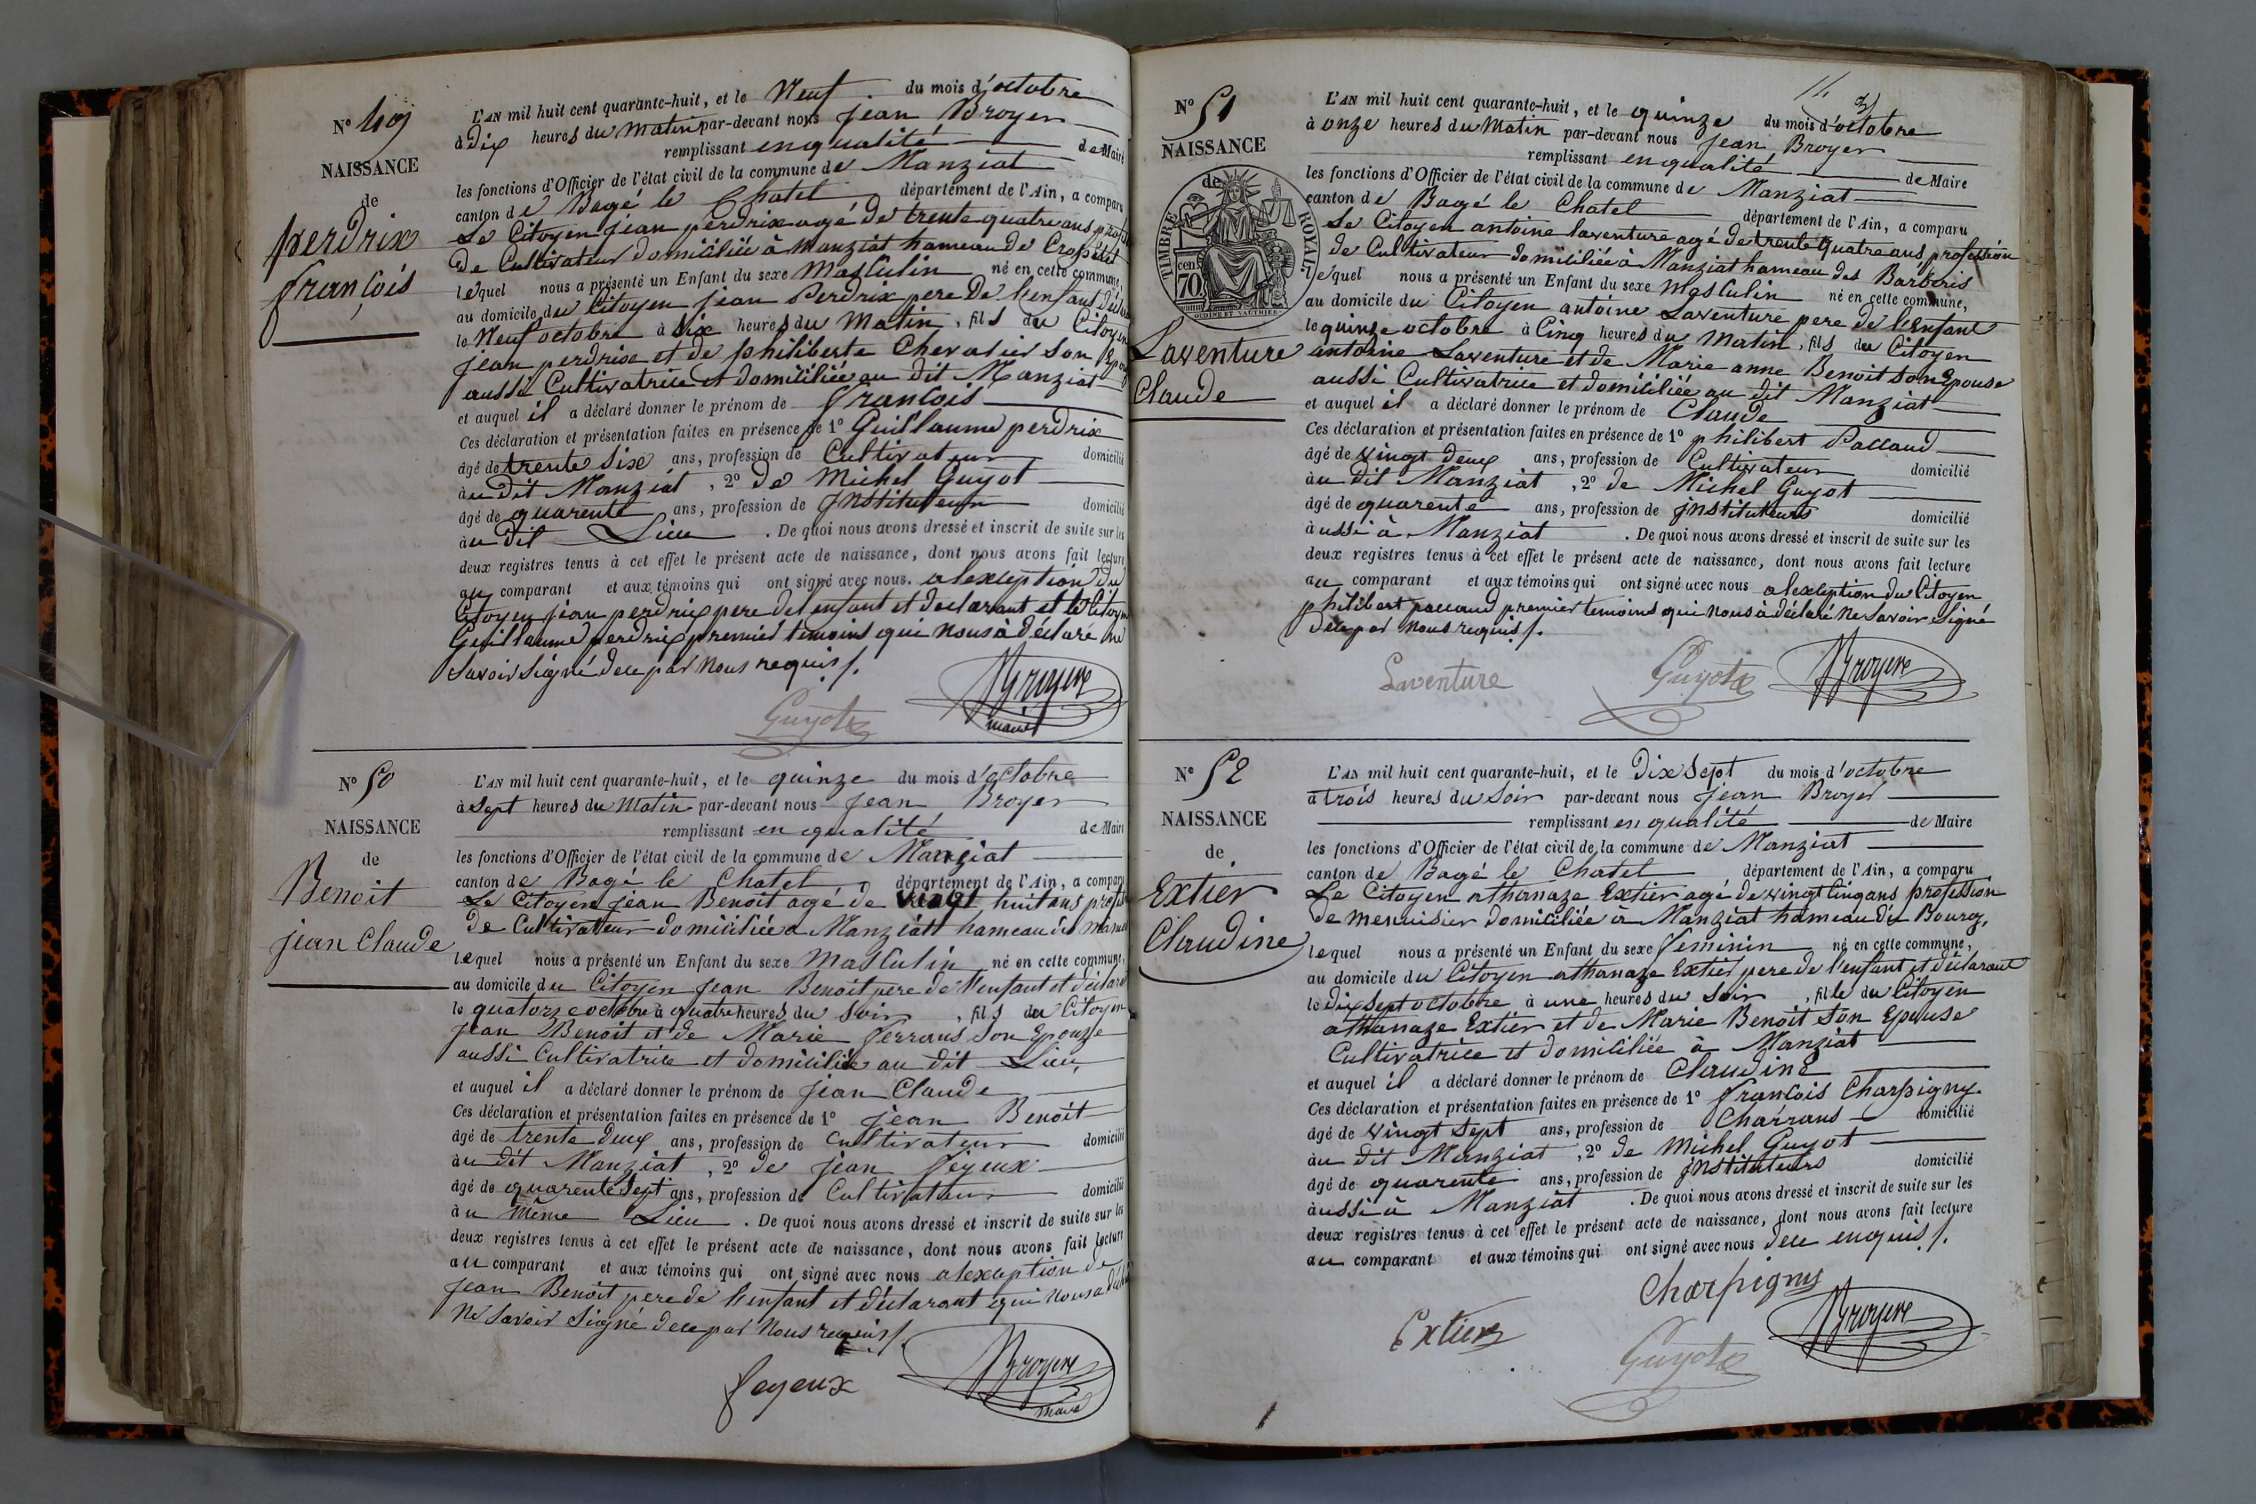 N° 49
NAISSANCE
de
perdrix
françois
L'AN mil huit cent quarante-huit, et le Neuf du mois d'octobre
à dix heures du matin par-devant nous jean Broyer
remplissant en qualité de Maire
les fonctions d'Officier de l'état civil de la commune de Manziat
canton de Bagé le Chatel département de l'Ain, a comparu
Le Citoyen jean perdrix agé de trente quatre ans
de Cultivateur domiciliée à Manziat hameau de Cropétet
lequel nous a présenté un Enfant du sexe Masculin né en cette commune,
au domicile du Citoyen jean Perdrix pere de l'enfant
le Neuf octobre à six heures du Matin, fils du Citoyen
jean perdrix et de philiberte Chevalier son
aussi Cultivatrice et domiciliée au dit Manziat
et auquel il a déclaré donner le prénom de françois
Ces déclaration et présentation faites en présence de 1° Guillaume perdrix
âgé de trente six ans, profession de Cultivateur domicilié
au dit Manziat, 2° de Michel Guyot
âgé de quarente ans, profession de jnstituteur domicilié
au dit Lieu. De quoi nous avons dressé et inscrit de suite sur les
deux registres tenus à cet effet le présent acte de naissance, dont nous avons fait lecture
au comparant et aux témoins qui ont signé avec nous. alexception du
Citoyen jean perdrix pere de l'enfant et declarant et le Citoyen
Guillaume perdrix premier temoins qui nous à déclaré ne
Savoir Signé dece par nous requis /.
Broyer
maire
Guyot
N° 50
NAISSANCE
de
Benoit
jean Claude
L'AN mil huit cent quarante-huit, et le quinze du mois d'octobre
à sept heures du Matin par-devant nous jean Broyer
remplissant en qualité de Maire
les fonctions d'Officier de l'état civil de la commune de Manziat
canton de Bagé le Chatel département de l'Ain, a comparu
Le Citoyen jean Benoit agé de vingt huit ans
de Cultivateur domiciliée a Manziat hameau des
lequel nous a présenté un Enfant du sexe Masculin né en cette commune,
au domicile du Citoyen jean Benoit pere de l'enfant et
le quatorze octobre à quatre heures du Soir, fils du Citoyen
jean Benoit et de Marie ferrans son Epouse
aussi Cultivatrice et domiciliée au dit Lieu,
et auquel il a déclaré donner le prénom de jean Claude
Ces déclaration et présentation faites en présence de 1° jean Benoit
âgé de trente deux ans, profession de Cultivateur domicilié
au dit Manziat, 2° de jean feyeux
âgé de quarente sept ans, profession de Cultivateur domicilié
à u même Lieu. De quoi nous avons dressé et inscrit de suite sur les
deux registres tenus à cet effet le présent acte de naissance, dont nous avons fait lecture
au comparant et aux témoins qui ont signé avec nous alexception de
jean Benoit pere de l'enfant et déclarant qui nous a
ne Savoir Signé dece par nous requis /.
feyeux
Broyer
maire
11
N° 51
NAISSANCE
de
TIMBRE ROYAL
70
Laventure
Claude
L'AN mil huit cent quarante-huit, et le quinze du mois d'octobre
à onze heures du Matin par-devant nous jean Broyer
remplissant en qualité de Maire
les fonctions d'Officier de l'état civil de la commune de Manziat
canton de Bagé le Chatel département de l'Ain, a comparu
Le Citoyen antoine laventure agé de trente quatre ans profession
de Cultivateur domiciliée à Manziat hameau des Barberis
lequel nous a présenté un Enfant du sexe Masculin né en cette commune,
au domicile du Citoyen antoine Laventure pere de l'enfant
le quinze octobre à Cinq heures du Matin, fils du Citoyen
antoine Laventure et de Marie anne Benoit son Epouse
aussi Cultivatrice et domiciliée au dit Manziat
et auquel il a déclaré donner le prénom de Claude
Ces déclaration et présentation faites en présence de 1° philibert Paccaud
âgé de vingt deux ans, profession de Cultivateur domicilié
au dit Manziat, 2° de Michel Guyot
âgé de quarente ans, profession de jnstituteurs domicilié
aussi à Manziat. De quoi nous avons dressé et inscrit de suite sur les
deux registres tenus à cet effet le présent acte de naissance, dont nous avons fait lecture
au comparant et aux témoins qui ont signé avec nous alexception du Citoyen
philibert paccaud premier temoins qui nous à déclaré ne Savoir Signé
dece par nous requis /.
Laventure
Guyot
Broyer
N° 52
NAISSANCE
de
Extier
Claudine
L'AN mil huit cent quarante-huit, et le Dix Sept du mois d'octobre
à trois heures du Soir par-devant nous jean Broyer
remplissant en qualité de Maire
les fonctions d'Officier de l'état civil de la commune de Manziat
canton de Bagé le Chatel, département de l'Ain, a comparu
Le Citoyen athanaze Extier agé de vingt Cinq ans profession
de menuisier domiciliée à Manziat hameau du Bourg,
lequel nous a présenté un Enfant du sexe feminin né en cette commune,
au domicile du Citoyen athanaze Extier pere de l'enfant et déclarant
le dix sept octobre à une heures du Soir, fille du Citoyen
athanaze Extier et de Marie Benoit Son Epouse
Cultivatrice et domiciliée à Manziat
et auquel il a déclaré donner le prénom de Claudine
Ces déclaration et présentation faites en présence de 1° françois Charpigny
âgé de vingt sept ans, profession de Charrans domicilié
au dit Manziat, 2° de Michel Guyot
âgé de quarente ans, profession de jnstituteurs domicilié
aussi à Manziat. De quoi nous avons dressé et inscrit de suite sur les
deux registres tenus à cet effet le présent acte de naissance, dont nous avons fait lecture
au comparant et aux témoins qui ont signé avec nous dece enquis /.
Charpigny
Extier
Guyot
Broyer